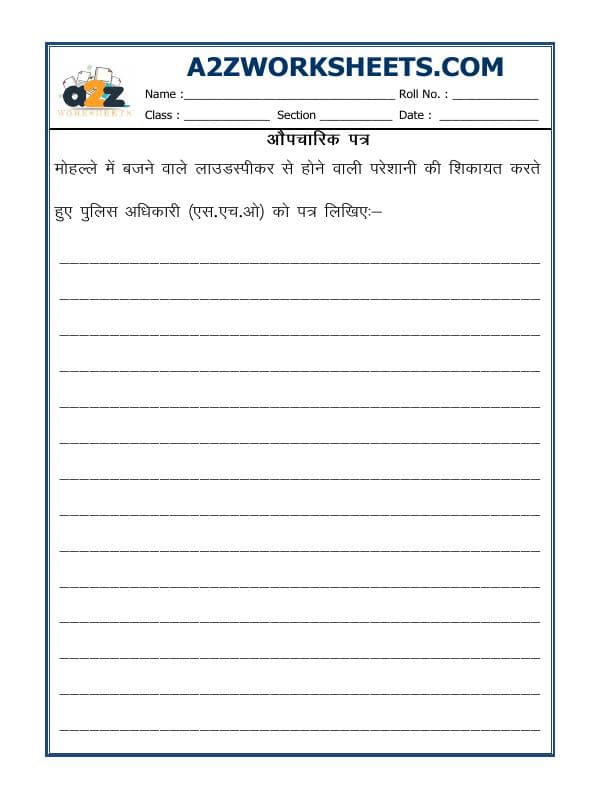 A2ZWORKSHEETS.COM
a2z
WORKSHEETS
Name :______________________________ Roll No. : ____________
Class : ____________ Section __________ Date : ______________
औपचारिक पत्र
मोहल्ले में बजने वाले लाउडस्पीकर से होने वाली परेशानी की शिकायत करते
हुए पुलिस अधिकारी (एस.एच.ओ) को पत्र लिखिए:–